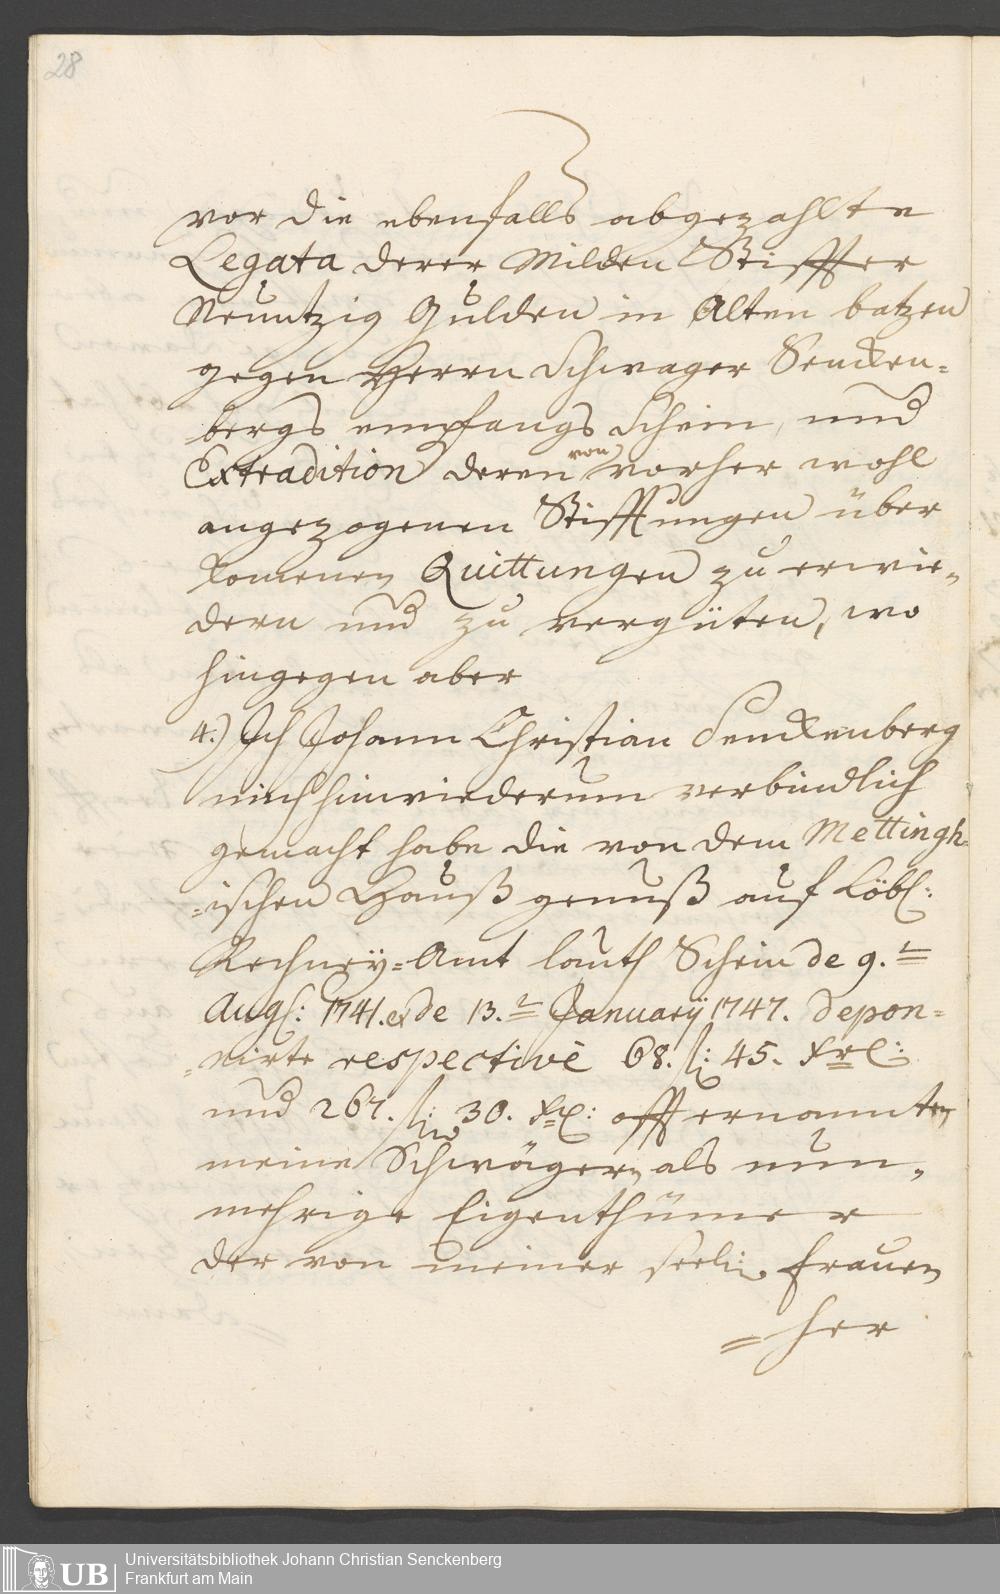 28
vor die ebenfalls abgezahlte
Legata derer Milden Stiffter
Neuntzig Gulden in Alten batzen
gegen Herrn Schwager Sencken=
bergs empfangs Schein, und
Extradition deren von vorher wohl
angezogenen Stifftungen über
komenen Quittungen zu erwie=
dern und zu vergüten, wo
hingegen aber
4.) Ich Johann Christian Senckenberg
mich hinwiederum verbindlich
gemacht habe die von dem Mettingh=
=ischen Hauß genuß auf Löbl:
Rechney=Amt lauth Schein de 9.
Aug: 1741. & de 13. January 1747. depon=
=nirte respectivè 68. fl: 45. Xr:
und 267. fl: 30. Xr: offternannten
meine Schwägern als nun=
mehrige Eigenthümer
der von meiner seeli: Frauen
= her
Universitätsbibliothek Johann Christian Senckenberg
Frankfurt am Main
UB